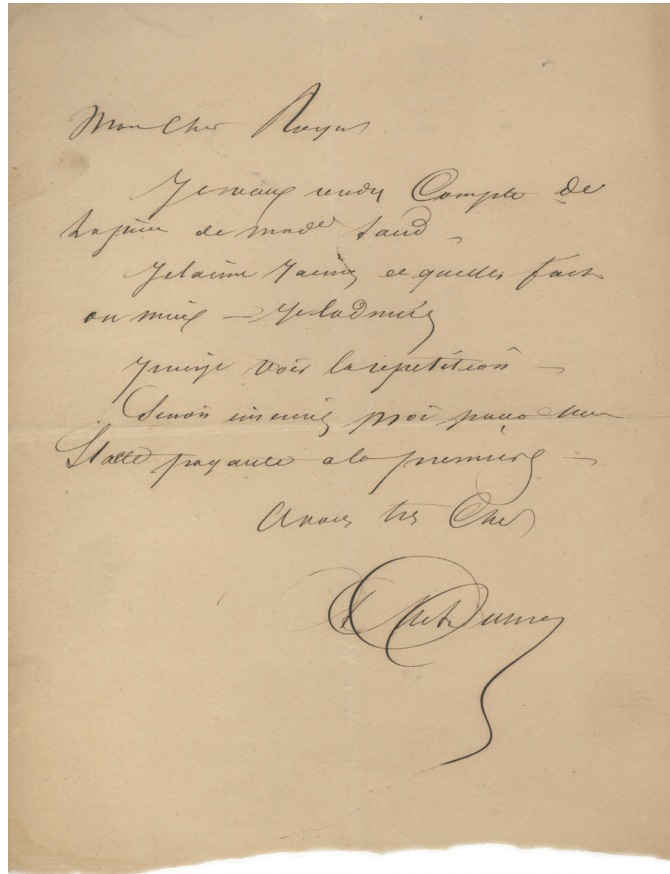 Mon cher Royer
Je veux rendre Compte de
la piece de made Sand
Je l'aime
ou mieux — Je l'admire
Puis-je voir la repetition —
Sinon inscrivez moi pour une
Stalle payante a la premiere —
A vous tres Cher
Alex Dumas